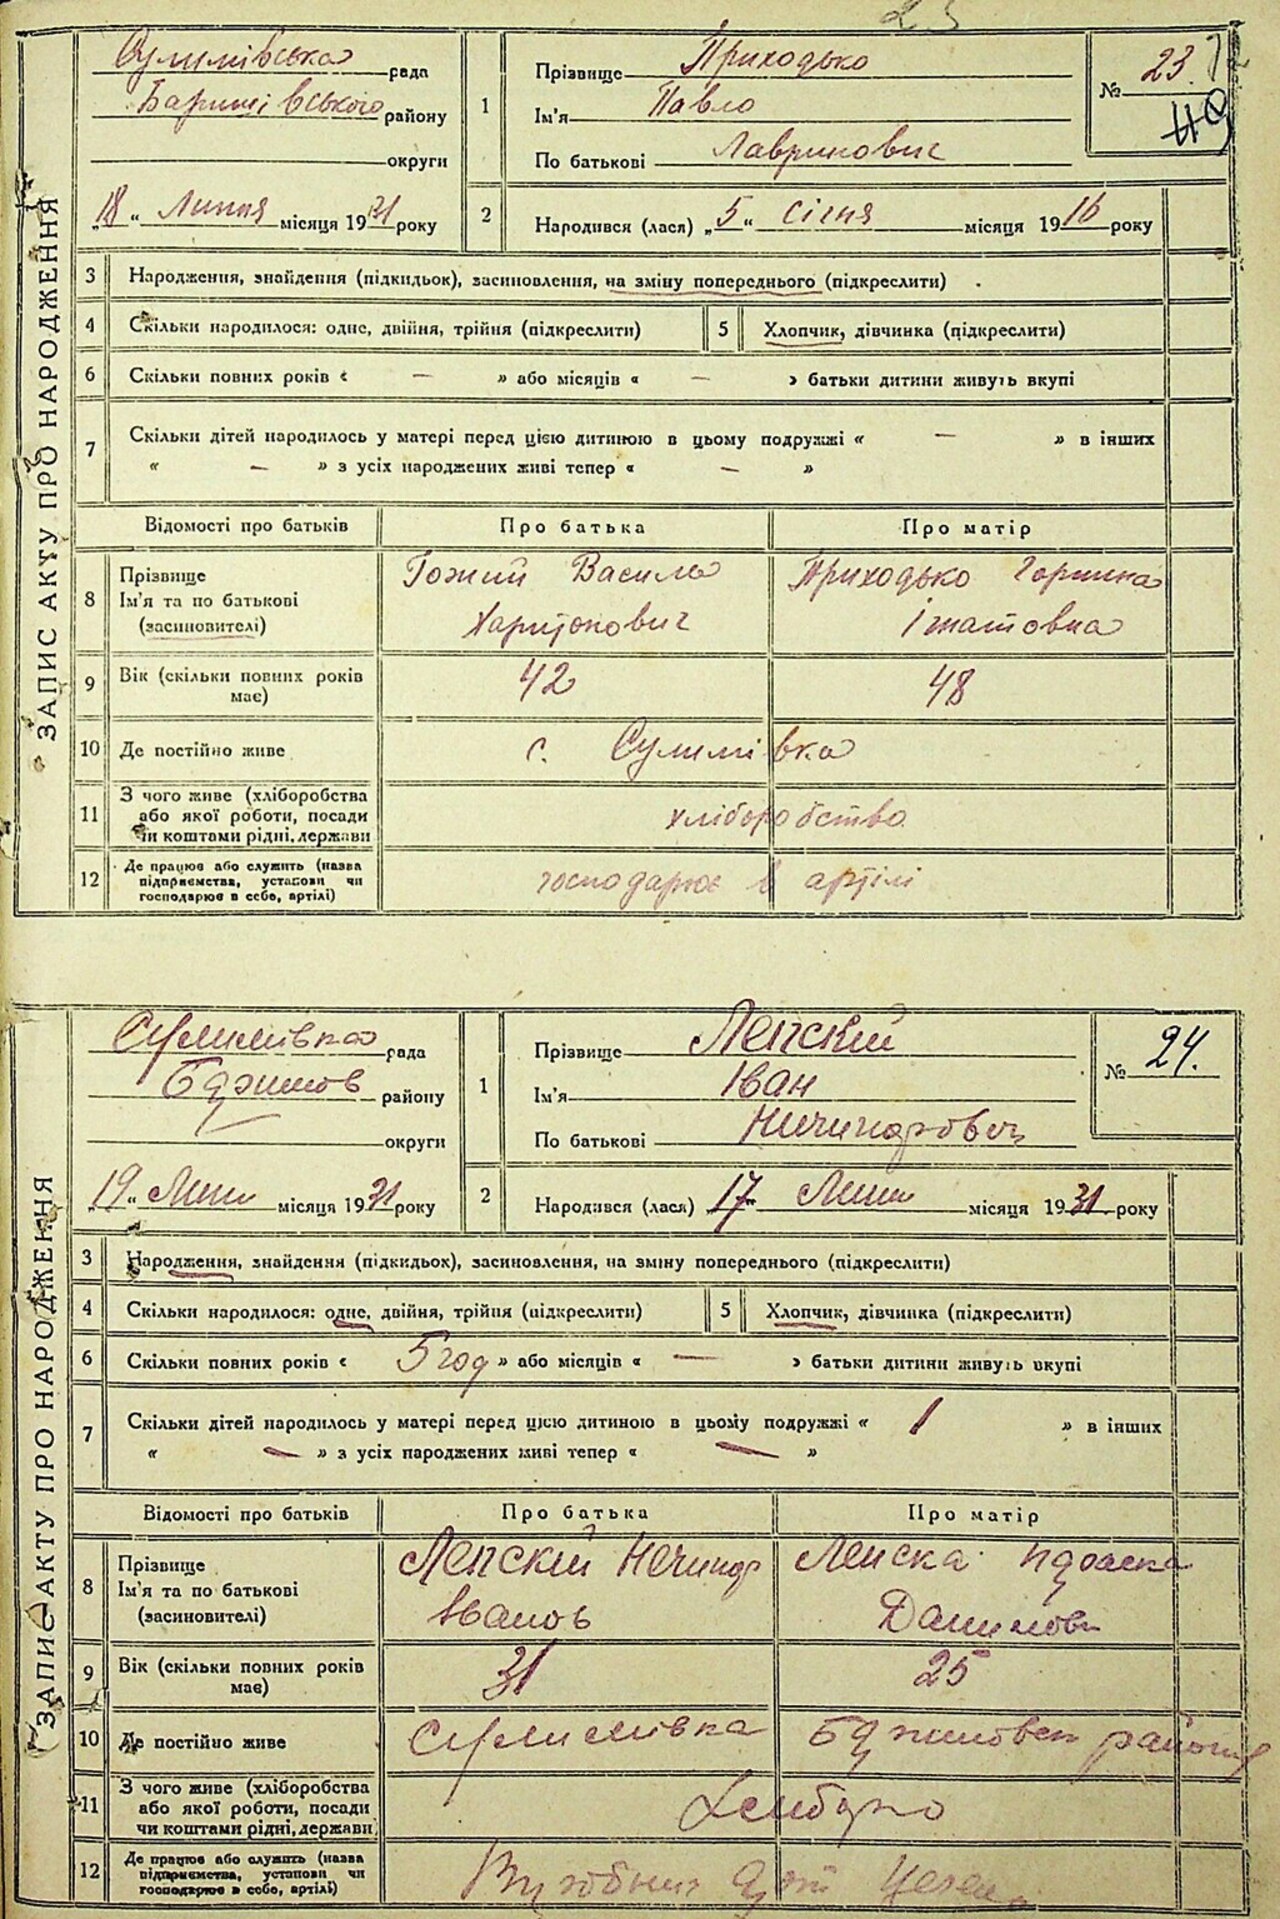 23
ЗАПИС АКТУ ПРО НАРОДЖЕННЯ
Сулимівська рада
Баришівського району
округи
„18“ Липня місяця 1931 року
1
Прізвище Приходько
Ім'я Павло
По батькові Лавринович
№ 23
2
Народився (лася) „5“ січня місяця 1916 року
3 Народження, знайдення (підкидьок), засиновлення, на зміну попереднього (підкреслити)
4 Скільки народилося: одне, двійня, трійня (підкреслити) 5 Хлопчик, дівчинка (підкреслити)
6 Скільки повних років « — » або місяців « — » батьки дитини живуть вкупі
7 Скільки дітей народилось у матері перед цією дитиною в цьому подружжі « — » в інших
« — » з усіх народжених живі тепер « — »
Відомості про батьків Про батька Про матір
8 Прізвище
Ім'я та по батькові
(засиновителі)
Гожий Василь
Харитонович
Приходько Горпина
Ігнатовна
9 Вік (скільки повних років має) 42 48
10 Де постійно живе с. Сулимівка
11 З чого живе (хліборобства
або якої роботи, посади
чи коштами рідні, держави
хліборобство
12 Де працює або служить (назва
підприємства, установи чи
господарює в себе, артілі)
господарює в артілі
ЗАПИС АКТУ ПРО НАРОДЖЕННЯ
Сулимівка рада
району
округи
„19“ місяця 1931 року
1
Прізвище Лепский
Ім'я Іван
По батькові
№ 24.
2
Народився (лася) 17 місяця 1931 року
3 Народження, знайдення (підкидьок), засиновлення, на зміну попереднього (підкреслити)
4 Скільки народилося: одне, двійня, трійня (підкреслити) 5 Хлопчик, дівчинка (підкреслити)
6 Скільки повних років « 5 год » або місяців « — » батьки дитини живуть вкупі
7 Скільки дітей народилось у матері перед цією дитиною в цьому подружжі « 1 » в інших
« — » з усіх народжених живі тепер « — »
Відомості про батьків Про батька Про матір
8 Прізвище
Ім'я та по батькові
(засиновителі)
Лепскій
Іванов
Лепска
Данилов
9 Вік (скільки повних років має) 31 25
10 Де постійно живе Сулимівка
11 З чого живе (хліборобства
або якої роботи, посади
чи коштами рідні, держави)
12 Де працює або служить (назва
підприємства, установи чи
господарює в себе, артілі)